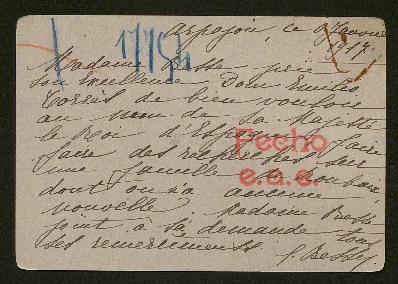 Arpajon, ce Janvier
17794
1917.
Madame Besse prie
son Excellence Dom Emilio
Torrès de bien vouloir
au nom de Sa Majesté
le Roi d'Espagne faire
faire des recherches sur
une famille de Roubaix
dont on n'a aucune
nouvelle. Madame Besse
joint à sa demande tous
ses remerciements
Fecho
e.a.e.
J. Besse